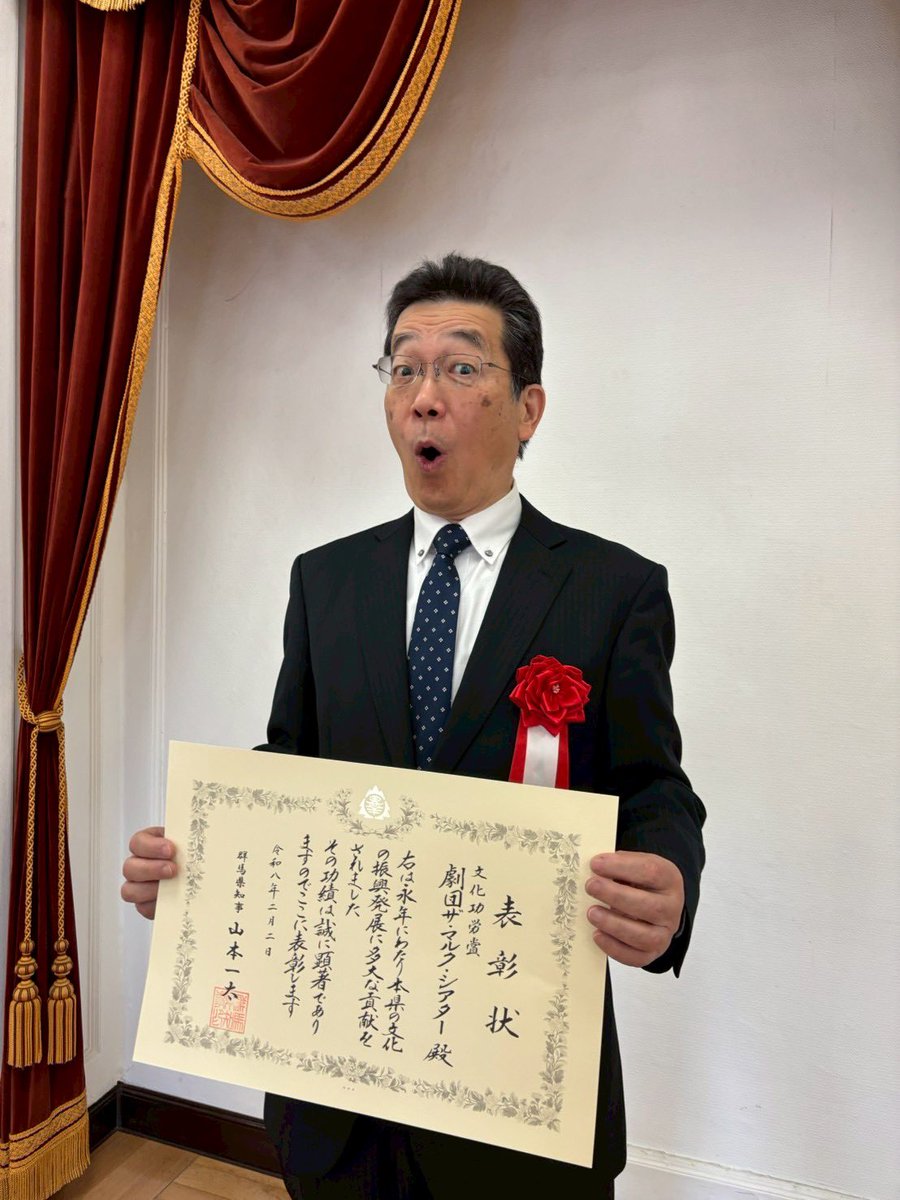 表彰状
文化功労賞
劇団ザ・マルク・シアター 殿
右は永年にわたり本県の文化
の振興発展に多大な貢献を
されました
その功績は誠に顕著であり
ますのでここに表彰します
令和八年二月二日
群馬県知事 山本一太